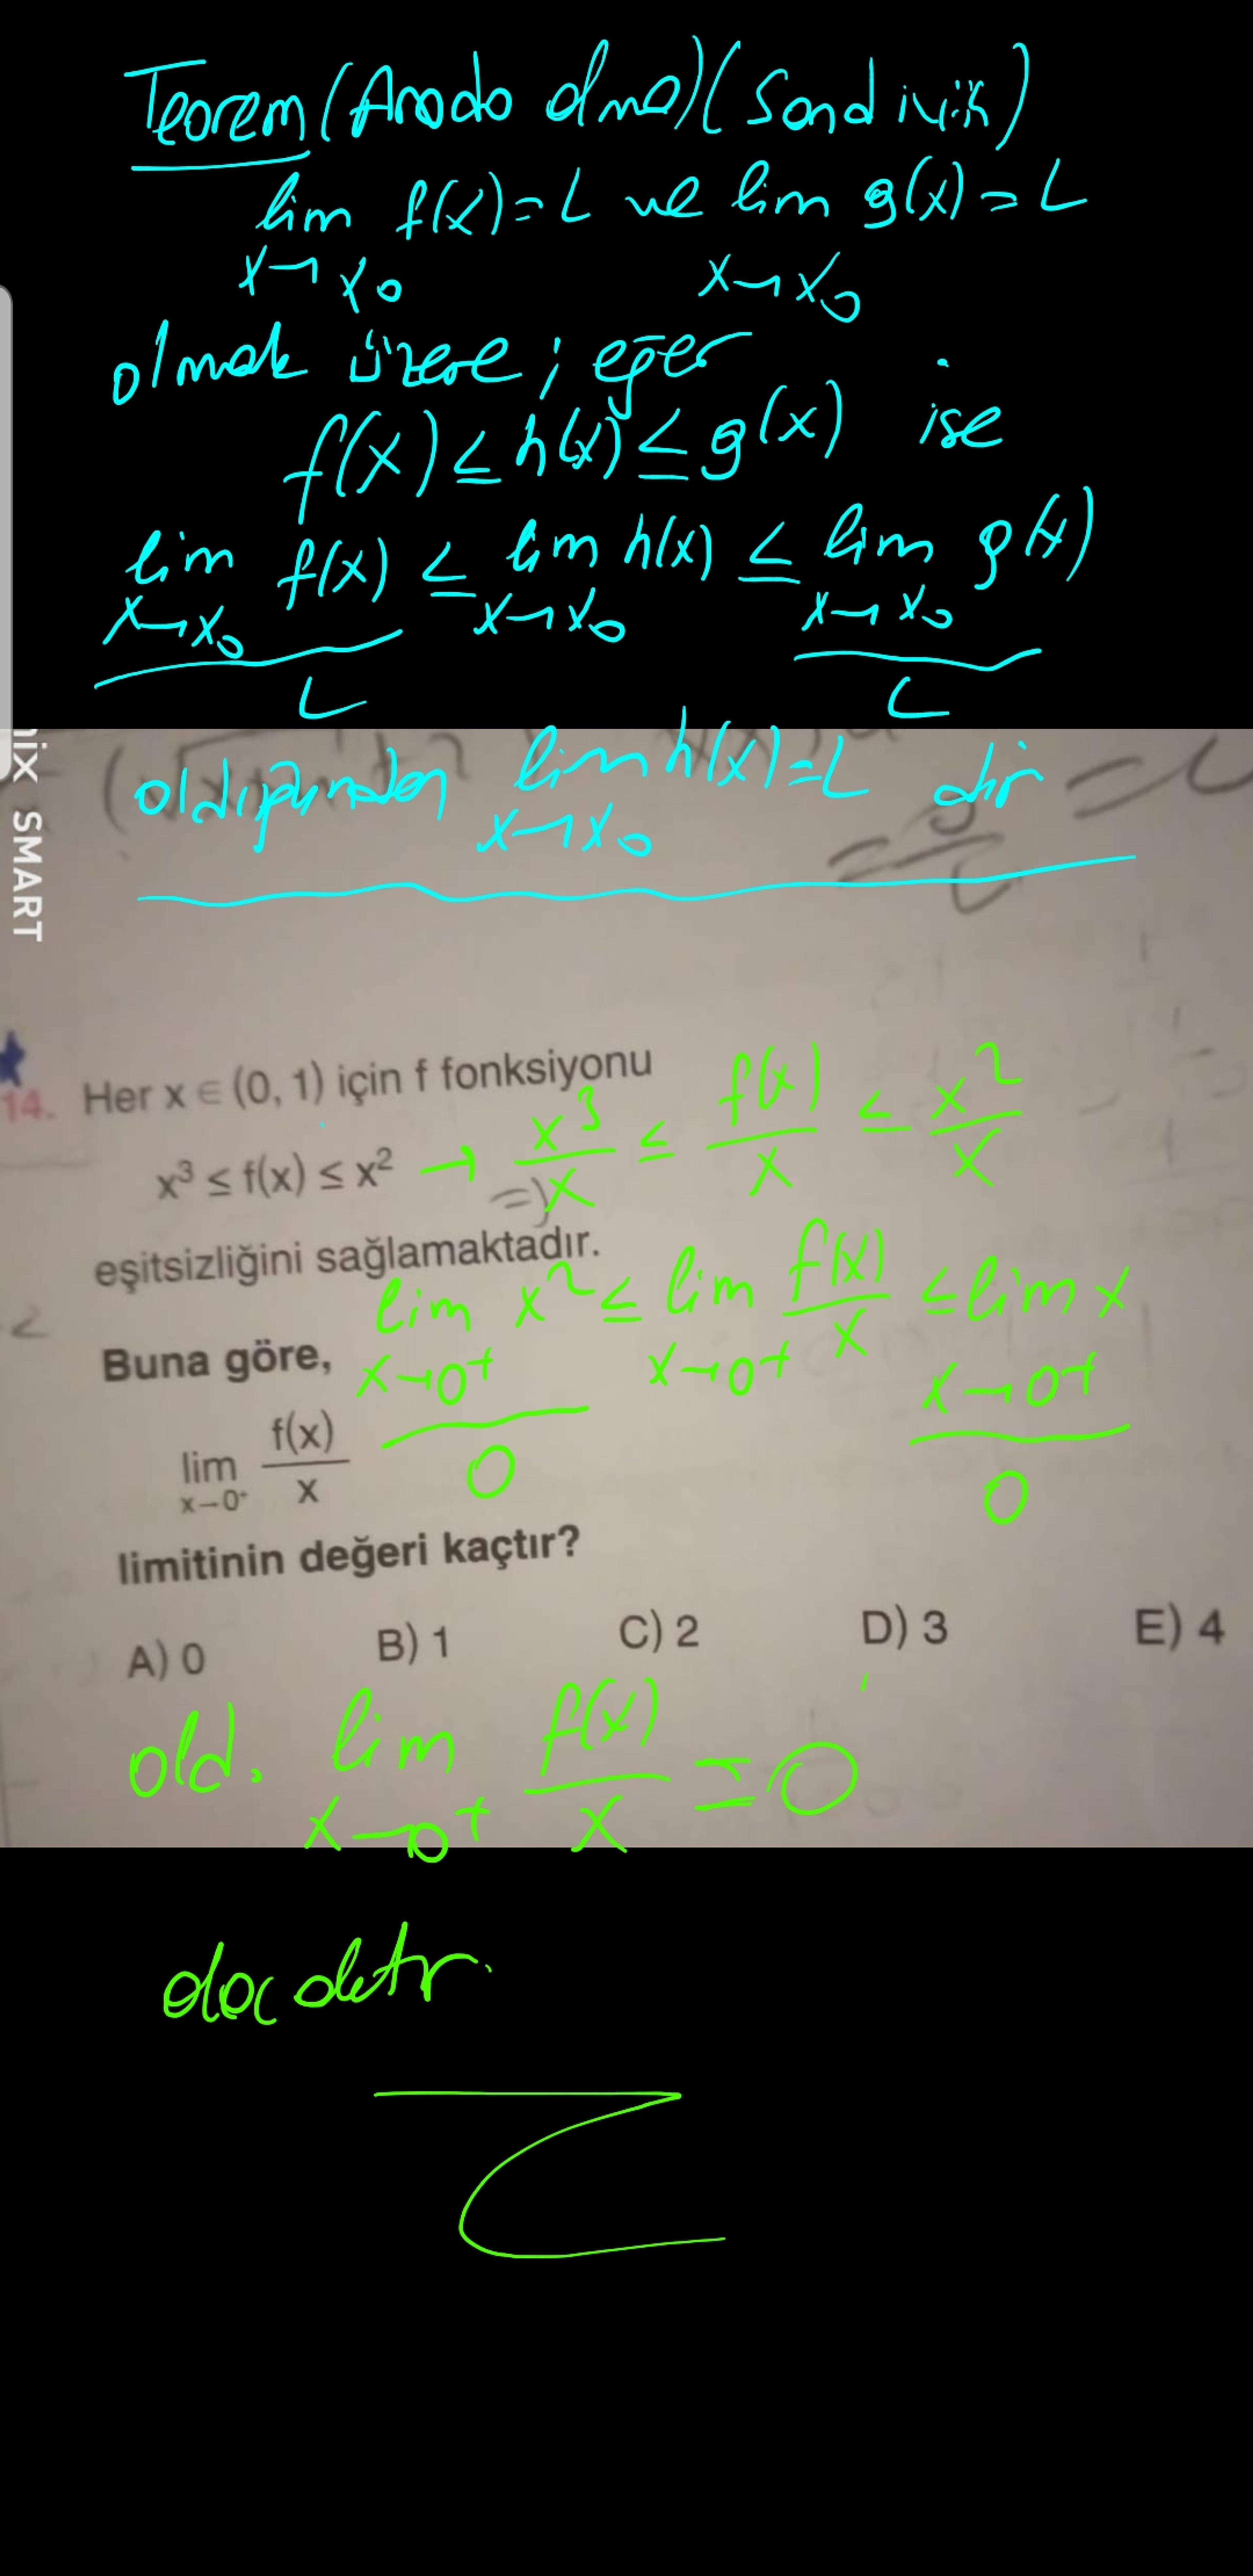 Teorem (Arada olma) (Sandiviç)
lim f(x) = L ve lim g(x) = L
x→x₀ x→x₀
olmak üzere; eğer
f(x) ≤ h(x) ≤ g(x) ise
lim f(x) ≤ lim h(x) ≤ lim g(x)
x→x₀ x→x₀ x→x₀
L L
olduğundan lim h(x) = L dir
x→x₀
SMART
14. Her x ∈ (0, 1) için f fonksiyonu
x³ ≤ f(x) ≤ x² → x³/x ≤ f(x)/x ≤ x²/x
eşitsizliğini sağlamaktadır.
lim x² ≤ lim f(x)/x ≤ lim x
x→0⁺ x→0⁺ x→0⁺
0 0
Buna göre,
lim f(x)/x
x→0⁺
limitinin değeri kaçtır?
A) 0 B) 1 C) 2 D) 3 E) 4
old. lim f(x)/x = 0
x→0⁺